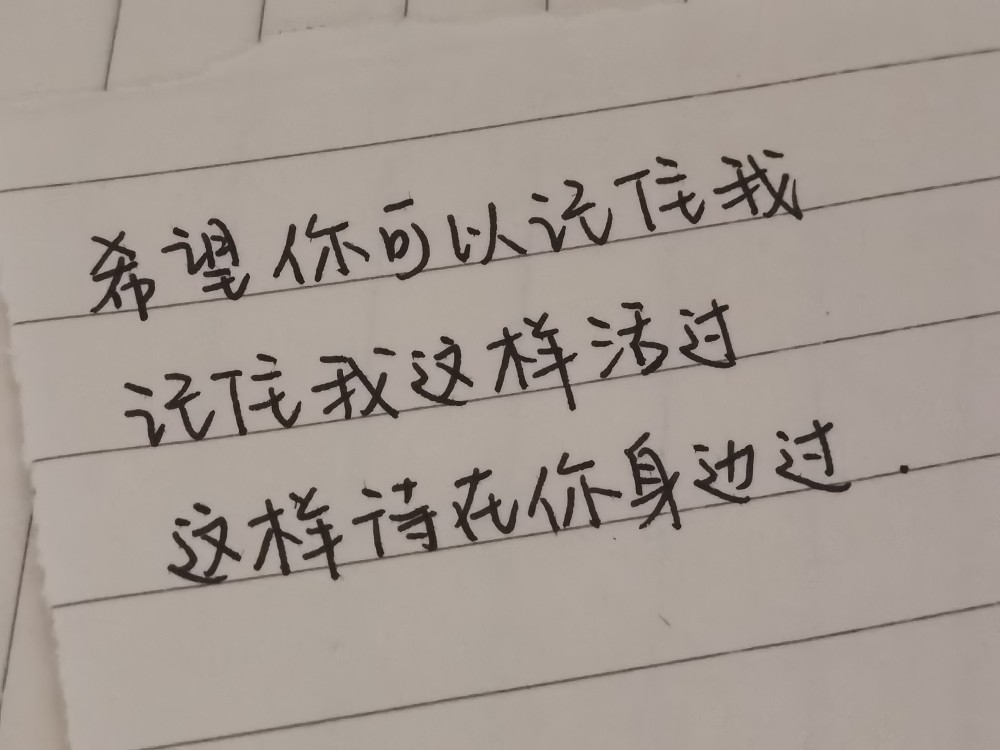 希望你可以记住我
记住我这样活过
这样待在你身边过.